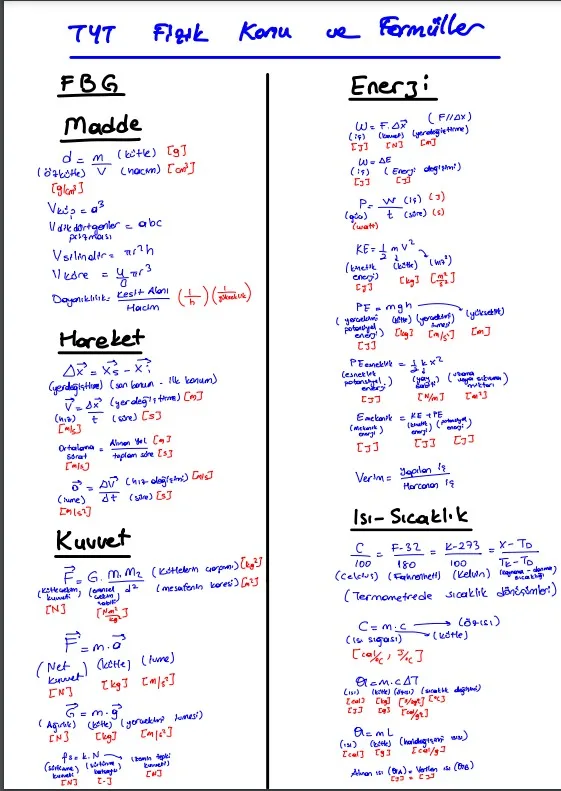 TYT Fizik Konu ve Formüller
FBG
Madde
d = m (kütle) [g]
(özkütle) V (hacim) [cm³]
[g/cm³]
Vküp = a³
Vdikdörtgenler = abc
prizması
Vsilindir = πr²h
Vküre = 4/3 πr³
Dayanıklılık = Kesit Alanı / Hacim (1/h) (1/yükseklik)
Hareket
Δx = xs - xi
(yerdeğiştirme) (son konum - ilk konum)
V = Δx (yerdeğiştirme) [m]
(hız) t (süre) [s]
[m/s]
Ortalama = Alınan Yol [m]
sürat toplam süre [s]
[m/s]
a = ΔV (hız değişimi) [m/s]
(ivme) Δt (süre) [s]
[m/s²]
Kuvvet
F = G. m₁ m₂ (kütlelerin çarpımı) [kg²]
(kütleçekim kuvveti) (evrensel çekim sabiti) d² (mesafenin karesi) [m²]
[N] [Nm²/kg²]
F = m.a
(Net kuvvet) (kütle) (ivme)
[N] [kg] [m/s²]
G = m.g
(Ağırlık) (kütle) (yerçekimi ivmesi)
[N] [kg] [m/s²]
fs = k.N
(sürtünme kuvveti) (sürtünme katsayısı) (zemin tepki kuvveti)
[N] [-] [N]
Enerji
W = F.Δx (F//Δx)
(iş) (kuvvet) (yerdeğiştirme)
[J] [N] [m]
W = ΔE
(iş) (Enerji değişimi)
[J] [J]
P = W (iş) (J)
(güç) t (süre) (s)
(watt)
KE = 1/2 m V²
(kinetik enerji) (kütle) (hız²)
[J] [kg] [m²/s²]
PE = mgh
(yerçekimi potansiyel enerji) (kütle) (yerçekimi ivmesi) (yükseklik)
[J] [kg] [m/s²] [m]
PEesneklik = 1/2 k x²
(esneklik potansiyel enerji) (yay sabiti) (uzama veya sıkışma miktarı)
[J] [N/m] [m²]
Emekanik = KE + PE
(mekanik enerji) (kinetik enerji) (potansiyel enerji)
[J] [J] [J]
Verim = Yapılan iş / Harcanan iş
Isı-Sıcaklık
C/100 = F-32/180 = K-273/100 = X-TD/TK-TD
(Celcius) (Fahrenheit) (Kelvin) (kaynama - donma sıcaklığı)
(Termometrede sıcaklık dönüşümleri)
C = m.c → (özısı)
(ısı sığası) (kütle)
[cal/°C, J/°C]
Q = m.cΔT
(ısı) (kütle) (özısı) (sıcaklık değişimi)
[cal] [kg] [J/kg°C] [°C]
[J] [g] [cal/g°C]
Q = mL
(ısı) (kütle) (haldeğişimi ısısı)
[cal] [g] [cal/g]
Alınan ısı (QA) = Verilen ısı (QB)
[J] = [J]